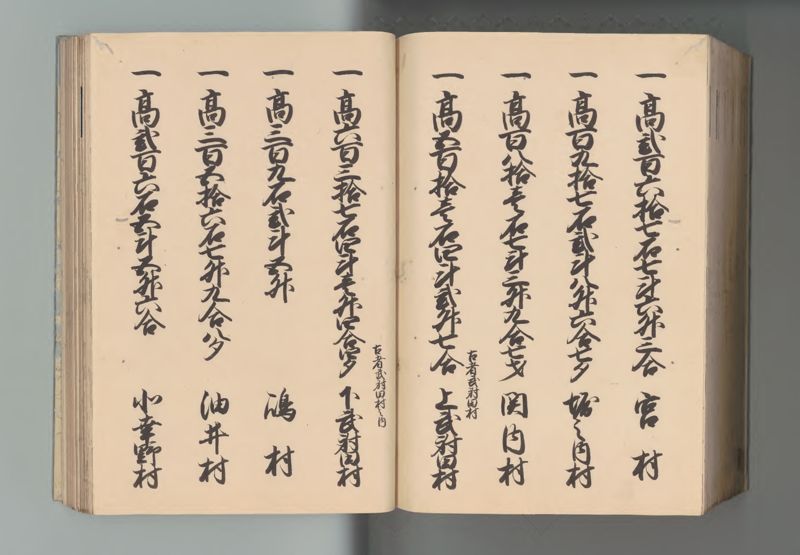 一高弐百六拾七石七斗六升三合 宮村
一高百九拾七石弐斗八升六合七夕 堀之内村
一高百八拾壱石七斗三升九合七才 関内村
一高五百拾壱石四斗弐升七合 上武射田村
古者武射田村
一高六百三拾七石四斗壱升四合四夕 下武射田村
古者武射田村之内
一高三百九石弐斗五升 嶋村
一高三百五拾六石七升九合八夕 油井村
一高弐百六石五斗五升六合 北幸野村